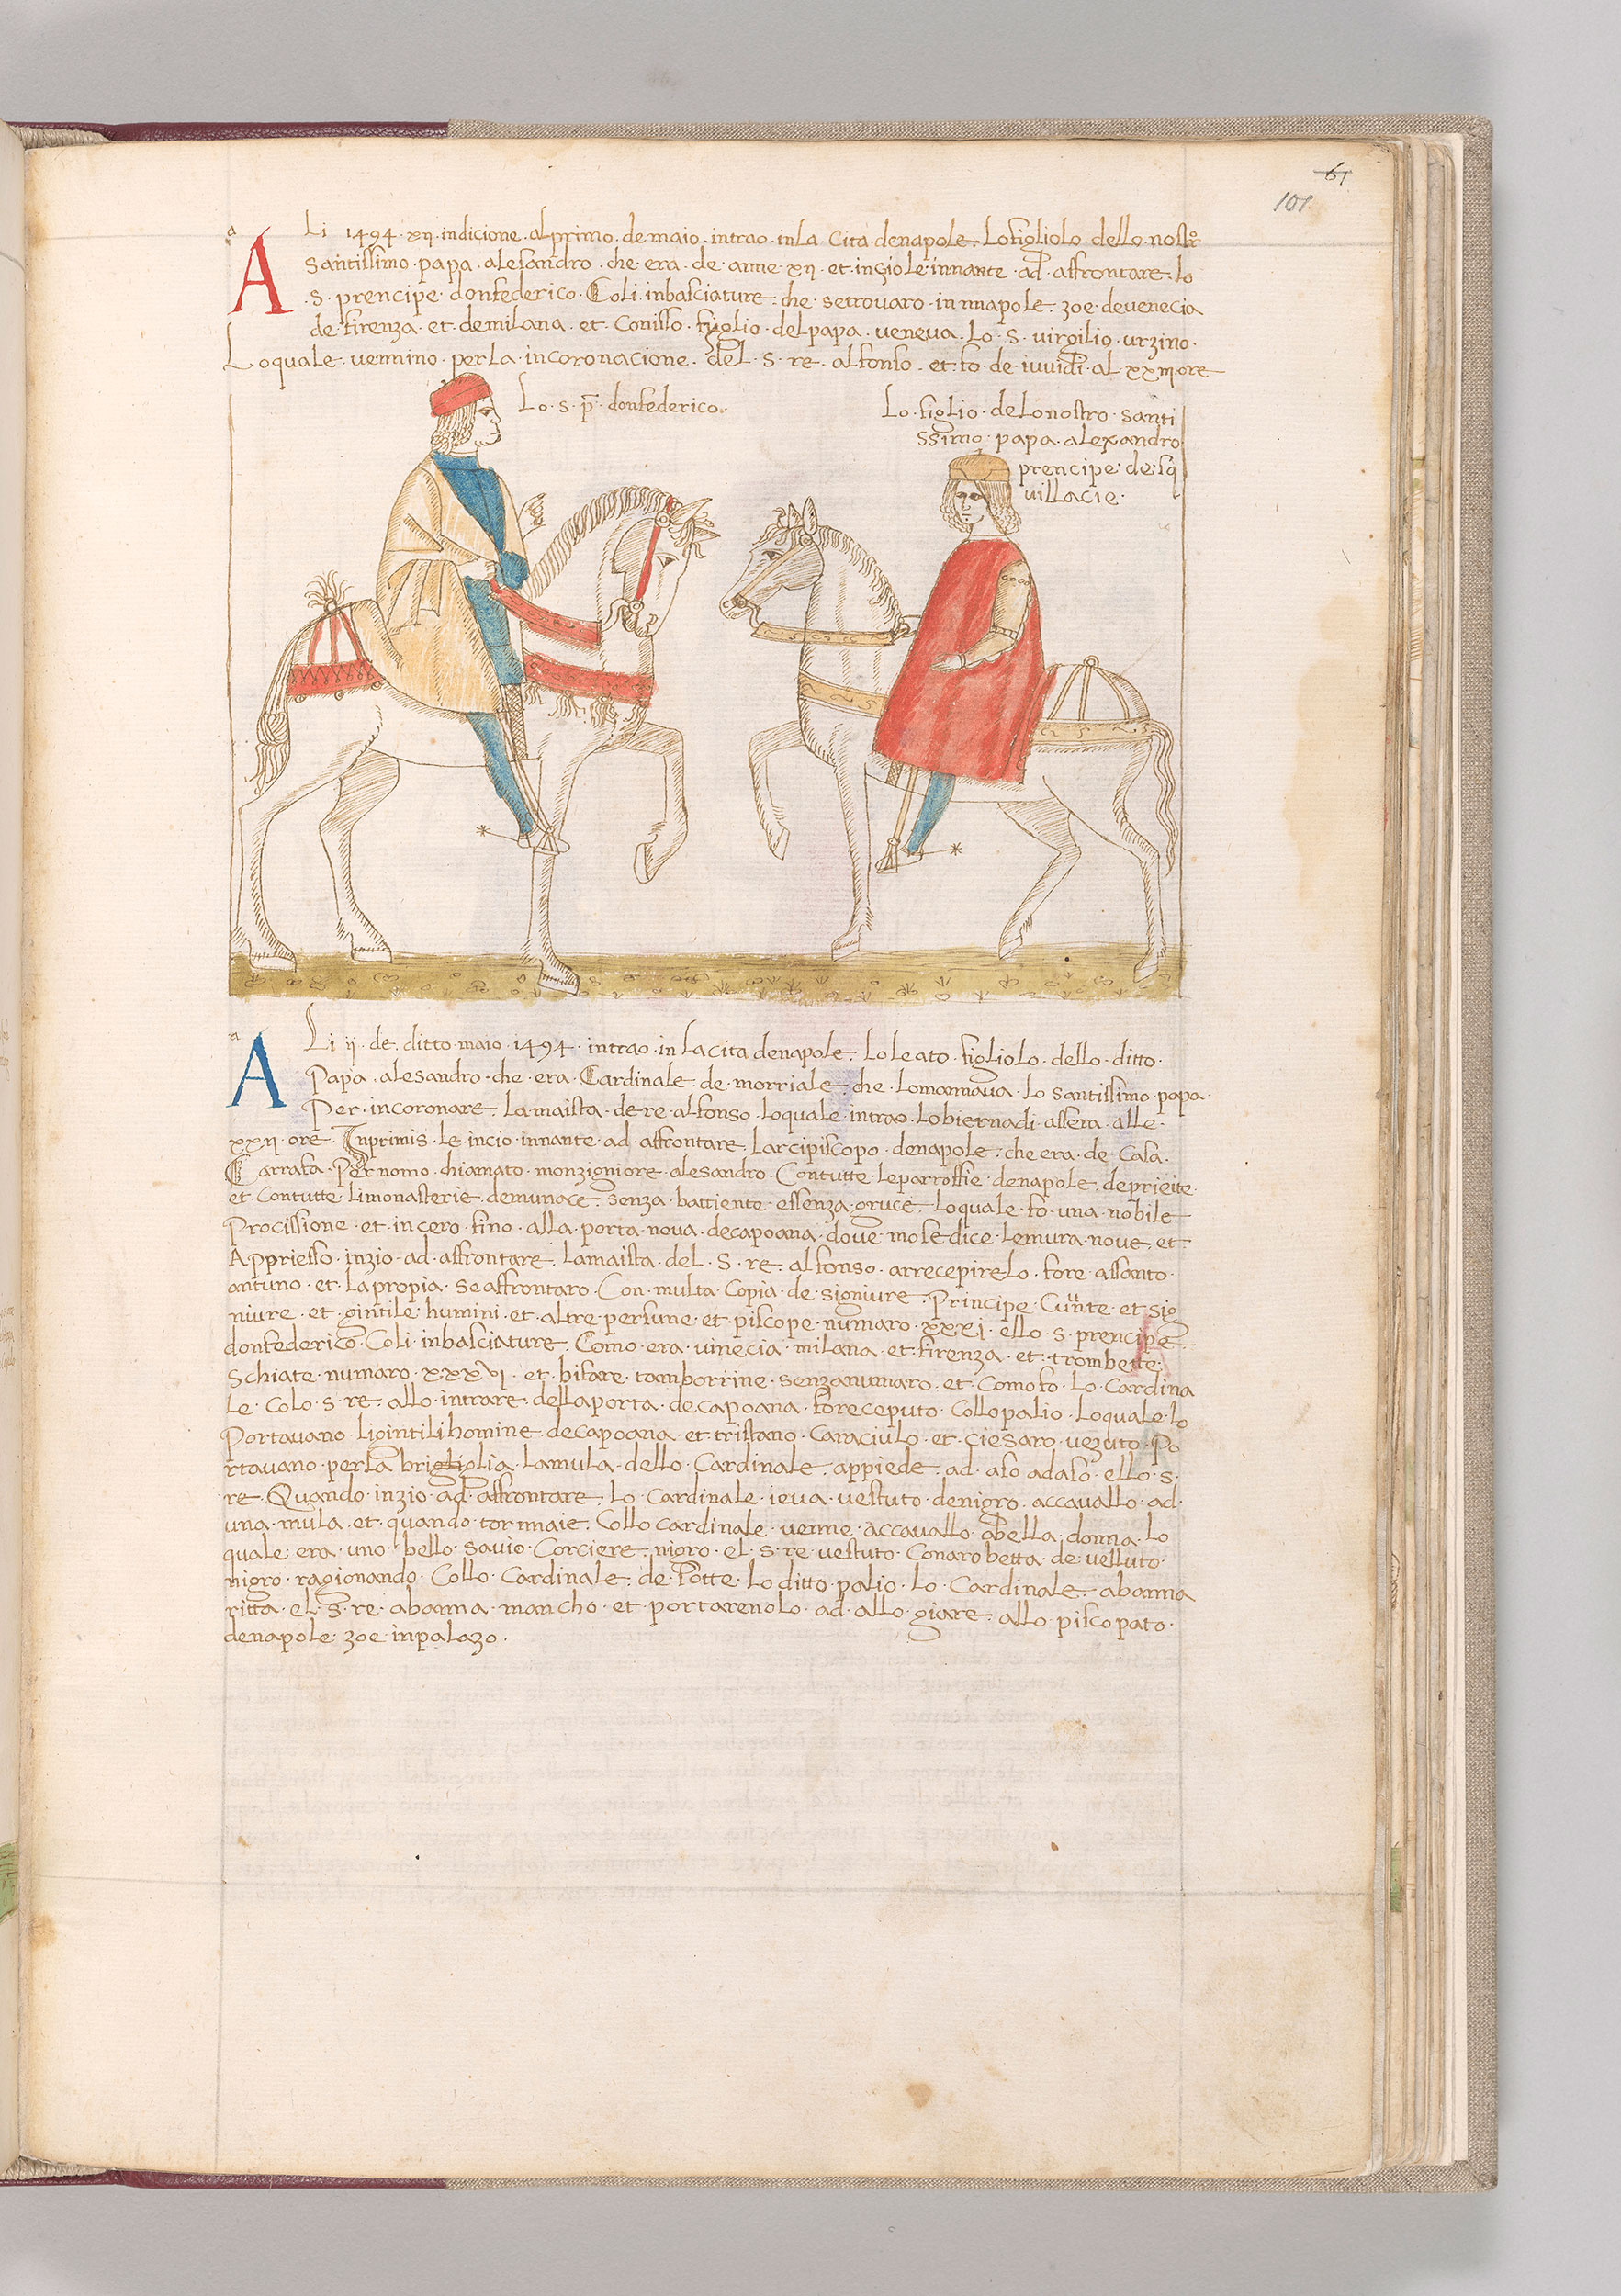 61
101.
ALi 1494 · xii · indicione · al primo · de maio · intrao · in La · Cita denapole · Lo figliolo · dello · nostro
Santissimo · papa · alesandro · che · era · de · anne · xii · et · inziole · innante · ad · affrontare · lo
· S · prencipe · donfederico · Coli · inbasciature · che · setrovaro · in nnapole · zoe · devenecia
de · firenza · et · demilana · et · Conisso · figlio · delpapa · veneva · Lo · S · virgilio · urzino ·
Loquale · vennino · per la · incoronacione · del · S · re · alfonso · et · fo · de · iuvidi · al · xxiii ore
Lo · s · p · donfederico ·
Lo · figlio · deLonostro · santi
ssimo · papa · alexandro
prencipe · de · sq
uillacie ·
ALi ii · de · ditto · maio · 1494 · intrao · in La cita denapole · Lo Leato · figliolo · dello · ditto ·
Papa · alesandro · che · era · Cardinale · de · morriale · che · Lomannava · lo santissimo · papa ·
Per · incoronare · La maista · de · re · alfonso · loquale · intrao · Lobiernadi · assera · alle ·
xxii · ore · Inprimis · le · incio · innante · ad · affrontare · Larcipiscopo · denapole · che era · de · Casa ·
Carrafa · Per nomo · chiamato · monzigniore · alesandro · Contutte · le parroffie · denapole · deprieite ·
et · Contutte · limonasterie · demunace · senza · battiente · essenza · cruce · Loquale · fo · una · nobile
Procissione · et · incero · fino · alla · porta · nova · decapoana · dove · mo se dice · Lemura · nove · et ·
Appriesso · inzio · ad · affrontare · Lamaista · del · S · re · alfonso · arrecepireLo · fore · assanto ·
antuno · et · La propia · se affrontaro · Con · multa · Copia · de · signiure · Principe · Cunte · et sig
niure · et · gintile · humini · et · altre · persune · et · piscope · numaro · xxxi · ello · s · prencipe ·
donfederico · Coli · inbasciature · Como · era · vinecia · milana · et · firenza · et · trombette ·
Schiate · numaro · xxxvi · et · bifare · tamborrine · senzanumaro · et · Como fo · Lo · Cardina
Le · Colo · s · re · allo · intrare · della porta · decapoana · fo receputo · Collo palio · Loquale · lo
Portavano · Ligintili homine · decapoana · et · tristano · Caraciulo · et · ciesaro · vezuto · Po
rtavano · per la brigliglia · Lamula · dello · Cardinale · appiede · ad · aso adaso · ello · s ·
re · Quando · inzio · ad · affrontare · Lo · cardinale · ieva · vestuto · denigro · accavallo · ad ·
una · mula · et · quando · tornnaie · Collo cardinale · venne · accavallo · abella · donna · lo
quale · era · uno · bello · savio · Corciere · nigro · el · s · re · vestuto · Conarobetta · de · velluto ·
nigro · ragionando · Collo · Cardinale · de · Sotte · Lo ditto · palio · Lo · Cardinale · abanna
ritta · el · S · re · abanna · mancho · et · portarenolo · ad · allo · giare · allo · piscopato ·
denapole · zoe · inpalazo ·